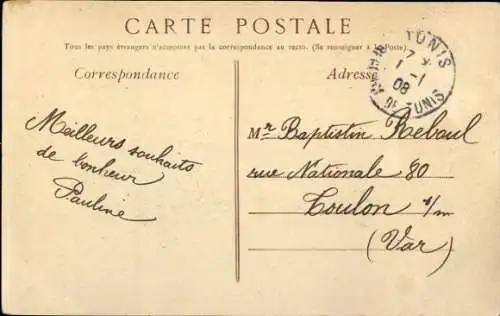 CARTE POSTALE
Tous les pays étrangers n'acceptent pas la correspondance au recto. (Se renseigner à la Poste)
Correspondance
Adresse
TUNIS
1 -1
08
TUNIS
Meilleurs souhaits
de bonheur
Pauline
Mr Baptistin Reboul
rue Nationale 80
Toulon s/m
(Var)